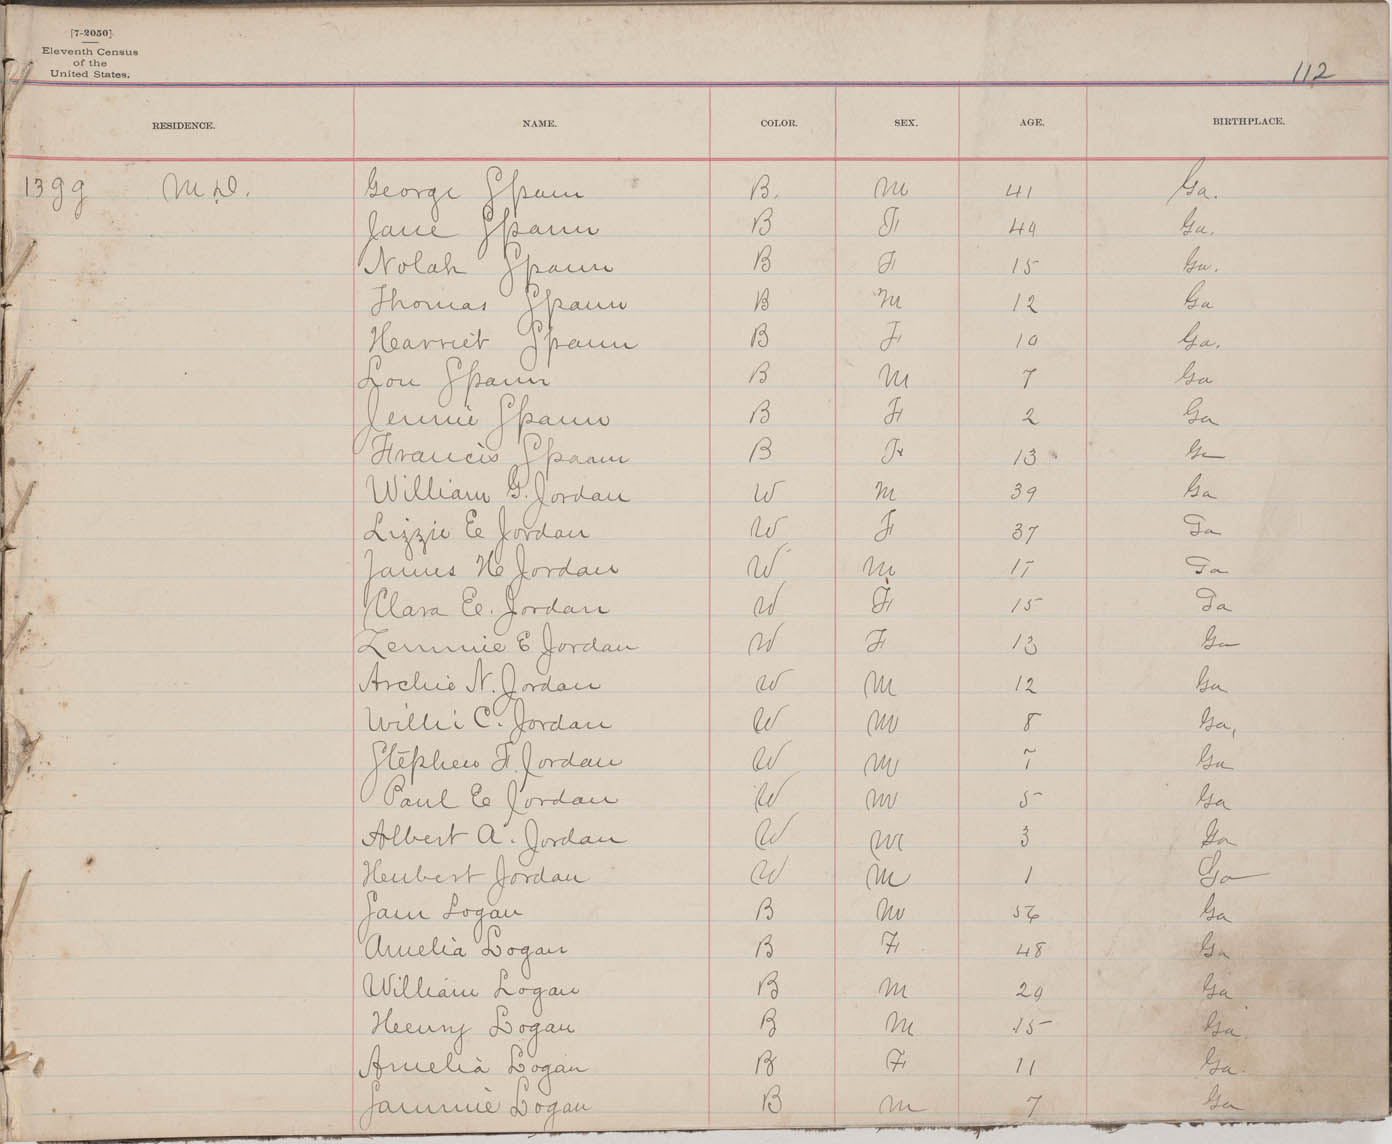 [7-2050]
Eleventh Census
of the
United States.
112
RESIDENCE. NAME. COLOR. SEX. AGE. BIRTHPLACE.
M.D. George Spann B. M 41 Ga.
Jane Spann B F Ga.
Nolah Spann B F 15 Ga.
Thomas Spann B M 12 Ga
Harriet Spann B F Ga.
Lou Spann B M 7 Ga
Jennie Spann B F 2 Ga
Francis Spann B F 13 Ga
William G. Jordan W M 39 Ga
Lizzie E Jordan W F 37 Ga
James H Jordan W M 17 Ga
Clara E. Jordan W F 15 Ga
Lemmie E Jordan W F 13 Ga
Archie N. Jordan W M 12 Ga
Willi C. Jordan W M 8 Ga,
Stephen F. Jordan W M 7 Ga
Paul E Jordan W M 5 Ga
Albert A. Jordan W M 3 Ga
Hubert Jordan W M 1 Ga
Sam Logan B M 56 Ga
Amelia Logan B F 48 Ga
William Logan B M Ga
Henry Logan B M 15 Ga.
Amelia Logan B F 11 Ga.
Sammie Logan B M 7 Ga